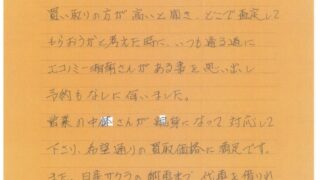 買い取りの方が高いと聞き、どこで査定して
もらおうかと考えた時に、いつも通る道に
エコノミー湘南さんがある事を思い出し
予約もなしに伺いました。
営業の中 さんが 身になって対応して
下さり、希望通りの買取価格に満足です。
また、日産サクラの納車まで代車を借りれ